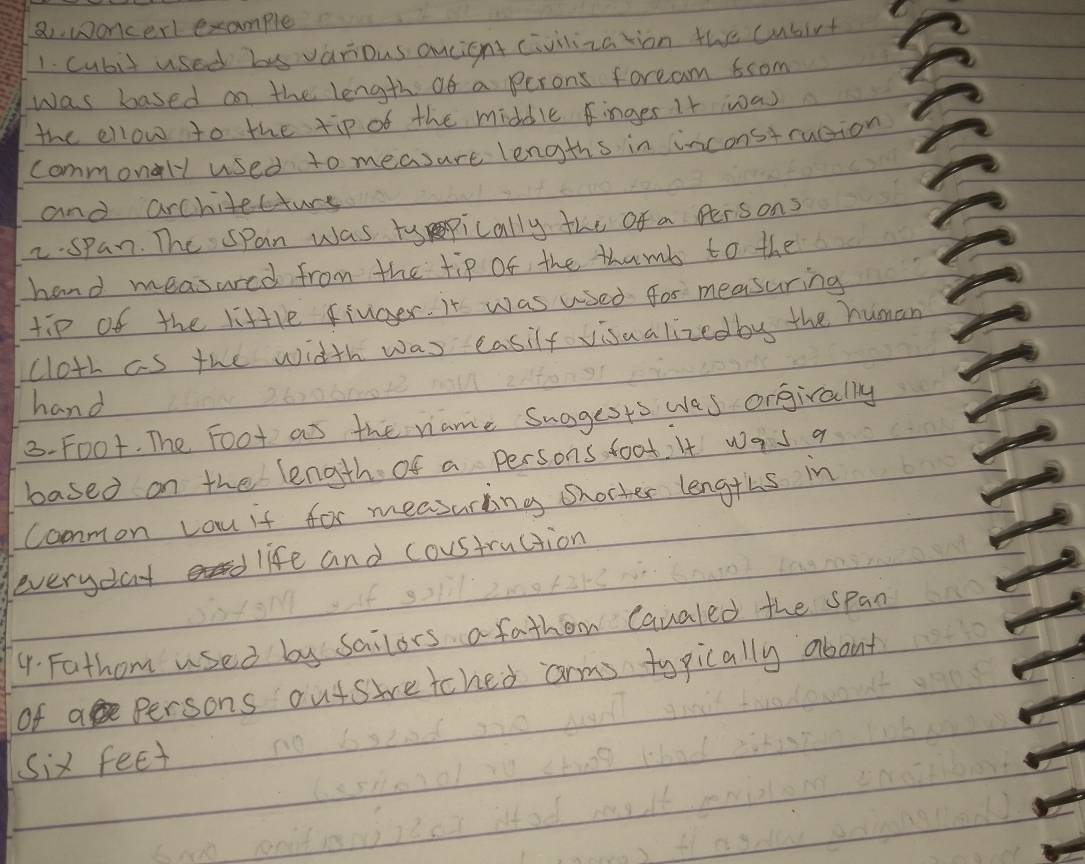 2. woncerl example
1. Cubit used bs various ancient civilization the cubirt
was based on the length of a perons foream from
the ellow to the tip of the middle finges It was
commonaly used to measure lengths in inconstruction
and architecture
2. span. The span was typically the of a Persons
hand measured from the tip of the thumb to the
tip of the little finger. it was used for measuring
cloth as the width was easilf visualized by the human
hand
3. Foot. The Foot as the name suggests was origirally
based on the length of a persons foot. It was a
common for measuring shorter lengths in
everydat life and construction
4. Fathom used by sailors a fathom Equaled the span
of a persons outstretched arms typically about
six feet